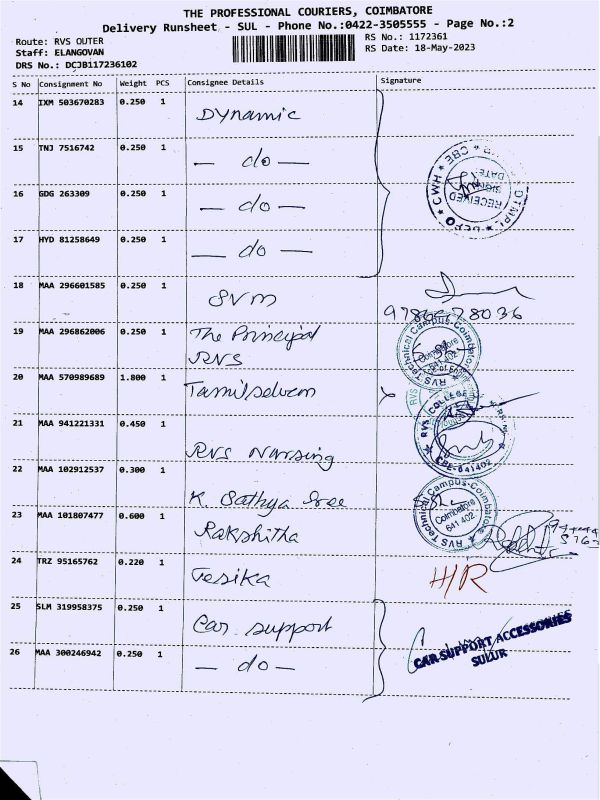 THE PROFESSIONAL COURIERS, COIMBATORE
Delivery Runsheet - SUL - Phone No.:0422-3505555 - Page No.:2
Route: RVS OUTER
Staff: ELANGOVAN
DRS No.: DCJB117236102
RS No.: 1172361
RS Date: 18-May-2023
S No Consignment No Weight PCS Consignee Details Signature
14 IXM 503670283 0.250 1 Dynamic
15 TNJ 7516742 0.250 1 — do —
16 GDG 263309 0.250 1 — do —
17 HYD 81258649 0.250 1 — do —
CWH CBE
RECEIVED
DATE
18 MAA 296601585 0.250 1 SVM
19 MAA 296862006 0.250 1 The Principal
RVS
RVS Technical Campus-Coimbatore
Coimbatore
641 402
20 MAA 570989689 1.800 1 Tamilselvem
21 MAA 941221331 0.450 1 RVS Nursing
RVS COLLEGE
CBE-641402
22 MAA 102912537 0.300 1 K. Sathya Sree
23 MAA 101807477 0.600 1 Rakshitha
RVS Technical Campus-Coimbatore
Coimbatore
641 402
24 TRZ 95165762 0.220 1 Tesika H/R
25 SLM 319958375 0.250 1 Car support
CAR SUPPORT ACCESSORIES
SULUR
26 MAA 300246942 0.250 1 — do —